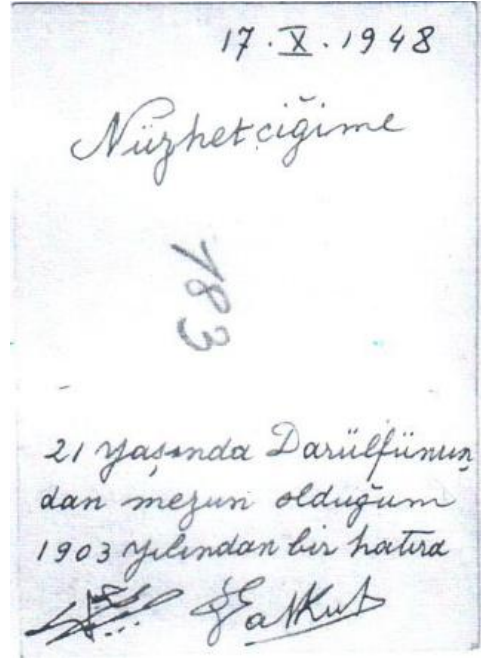 17.X.1948
Nüzhetçiğime
183
21 yaşında Darülfünun
dan mezun olduğum
1903 yılından bir hatıra